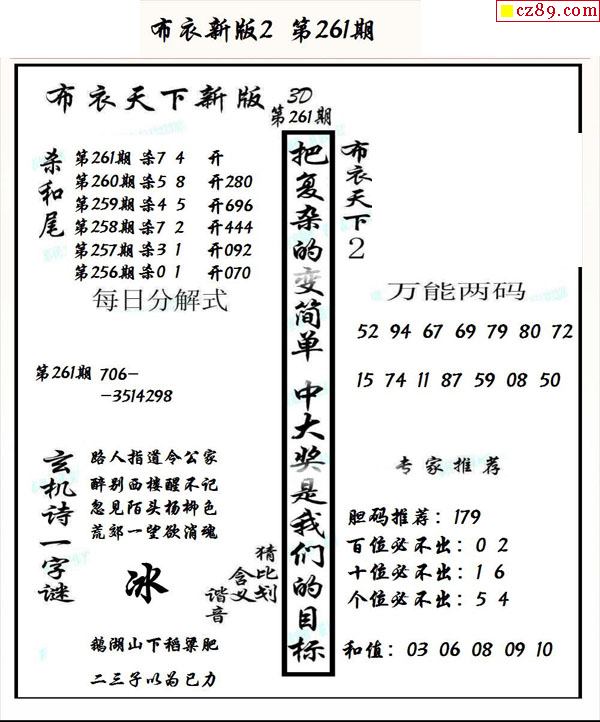 cz89.com
布衣新版2 第261期
布衣天下新版 3D
第261期
杀和尾
第261期 杀7 4 开
第260期 杀5 8 开280
第259期 杀4 5 开696
第258期 杀7 2 开444
第257期 杀3 1 开092
第256期 杀0 1 开070
每日分解式
第261期 706-
-3514298
玄机诗一字谜
路人指道令公家
醉别西楼醒不记
忽见陌头杨柳色
荒郊一望欲消魂
冰
猜比划
含义
谐音
鹅湖山下稻粱肥
二三子以为已力
把复杂的变简单 中大奖是我们的目标
布衣天下2
万能两码
52 94 67 69 79 80 72
15 74 11 87 59 08 50
专家推荐
胆码推荐：179
百位必不出：0 2
十位必不出：1 6
个位必不出：5 4
和值：03 06 08 09 10